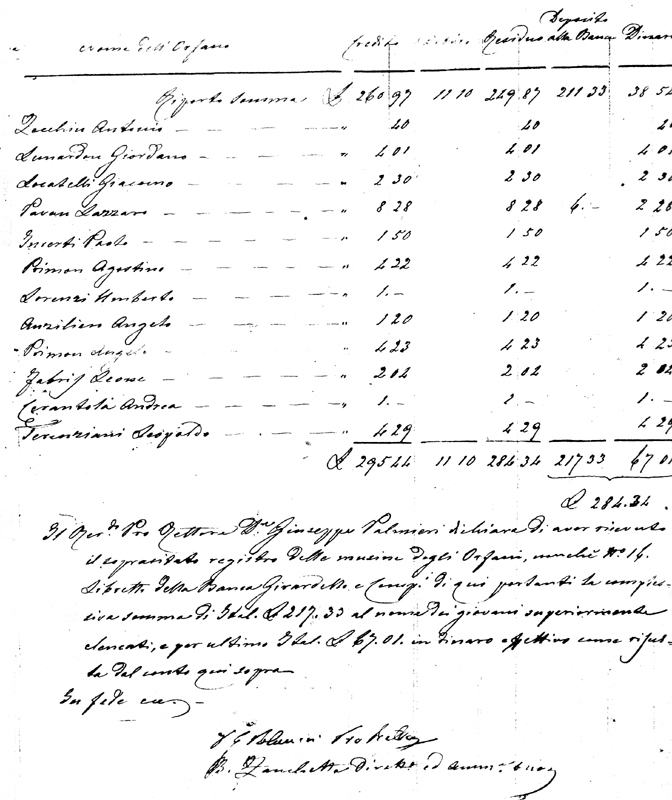 Nome dell' Orfano Credito Residuo Deposito alla Banca Dinaro
Riporto Somma £ 260 97 11 10 249 87 211 33 38 54
Zecchin Antonio — — — — " 40 40 40
Lunardon Giordano — — — — " 4 01 4 01 4 01
Locatelli Giacomo — — — — " 2 30 2 30 2 30
Pavan Lazzaro — — — — " 8 28 8 28 6.- 2 28
Incerti Paolo — — — — " 1 50 1 50 1 50
Poimon Agostino — — — — " 4 22 4 22 4 22
Lorenzi Umberto — — — — " 1.- 1.- 1.-
Auzilien Angelo — — — — " 1 20 1 20 1 20
Poimon Angelo — — — — " 4 23 4 23 4 23
Fabris Leone — — — — " 2 02 2 02 2 02
Cerantola Andrea — — — — " 1.- 1.- 1.-
Terenziani Leopoldo — — — — " 4 29 4 29 4 29
£ 295 44 11 10 284 34 217 33 67 01
£ 284.34
Il Rev.do Pro Rettore D.n Giuseppe Palmieri dichiara di aver ricevuto
il sopracitato registro delle musine degli Orfani, nonchè N.o 16.
Libretti della Banca Girardello e Comp.i di quì portanti la complessiva
somma di Ital. £ 217.33 al nome dei giovani superiormente
elencati, e per ultimo Ital. £ 67.01. in dinaro effettivo come risulta
dal conto qui sopra
In fede ecc.
Palmieri Pro Rettor
B. Zanchetta Dirett. ed Amm.